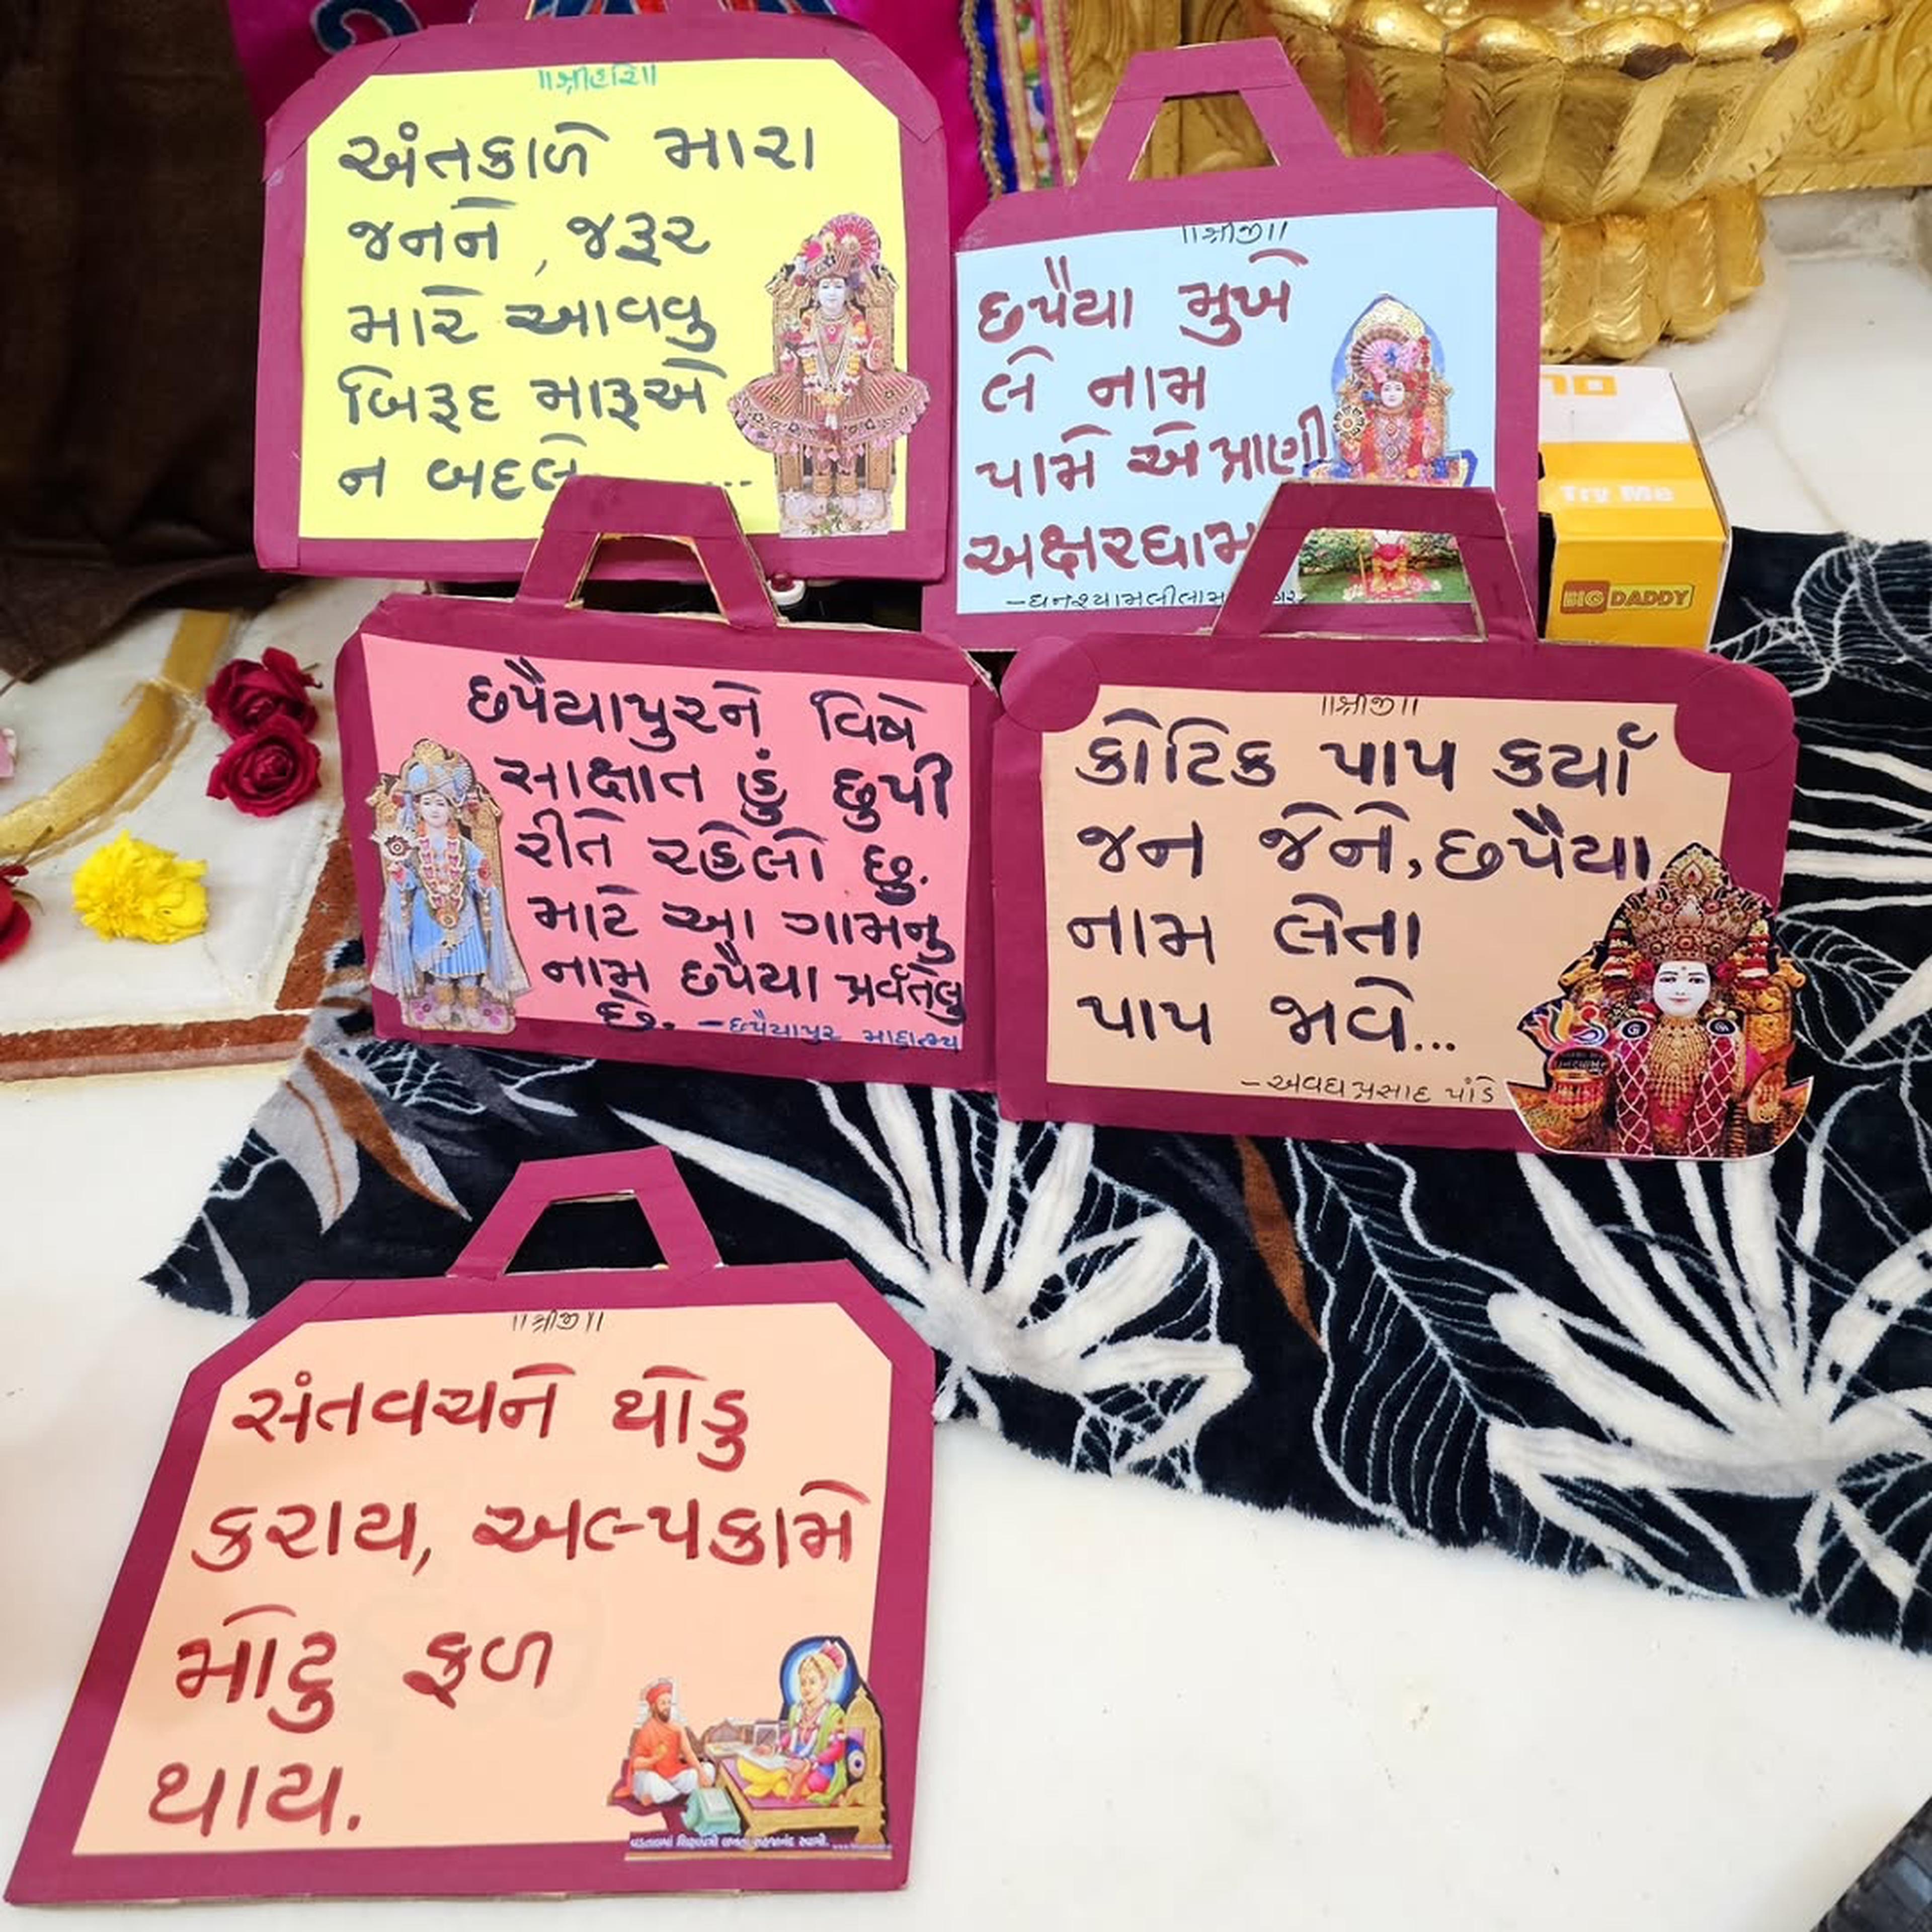 ॥શ્રીહરિ॥
અંતકાળે મારા
જનને, જરૂર
મારે આવવુ
બિરૂદ મારૂએ
ન બદલે
॥શ્રીજી॥
છપૈયા મુખે
લે નામ
પામે એ પ્રાણી
અક્ષરધામ
છપૈયાપુરને વિષે
સાક્ષાત હું છુપી
રીતે રહેલો છુ.
માટે આ ગામનુ
નામ છપૈયા પ્રર્વતેલુ
છે. - છપૈયાપુર માહાત્મ્ય
॥શ્રીજી॥
કોટિક પાપ કર્યાં
જન જેને, છપૈયા
નામ લેતા
પાપ જાવે...
- અવધપ્રસાદ પાંડે
Try Me
BIG DADDY
॥શ્રીજી॥
સંતવચને થોડુ
કરાય, અલ્પકામે
મોટુ ફળ
થાય.
વડતાલમાં શિક્ષાપત્રી લખતા સહજાનંદ સ્વામી.